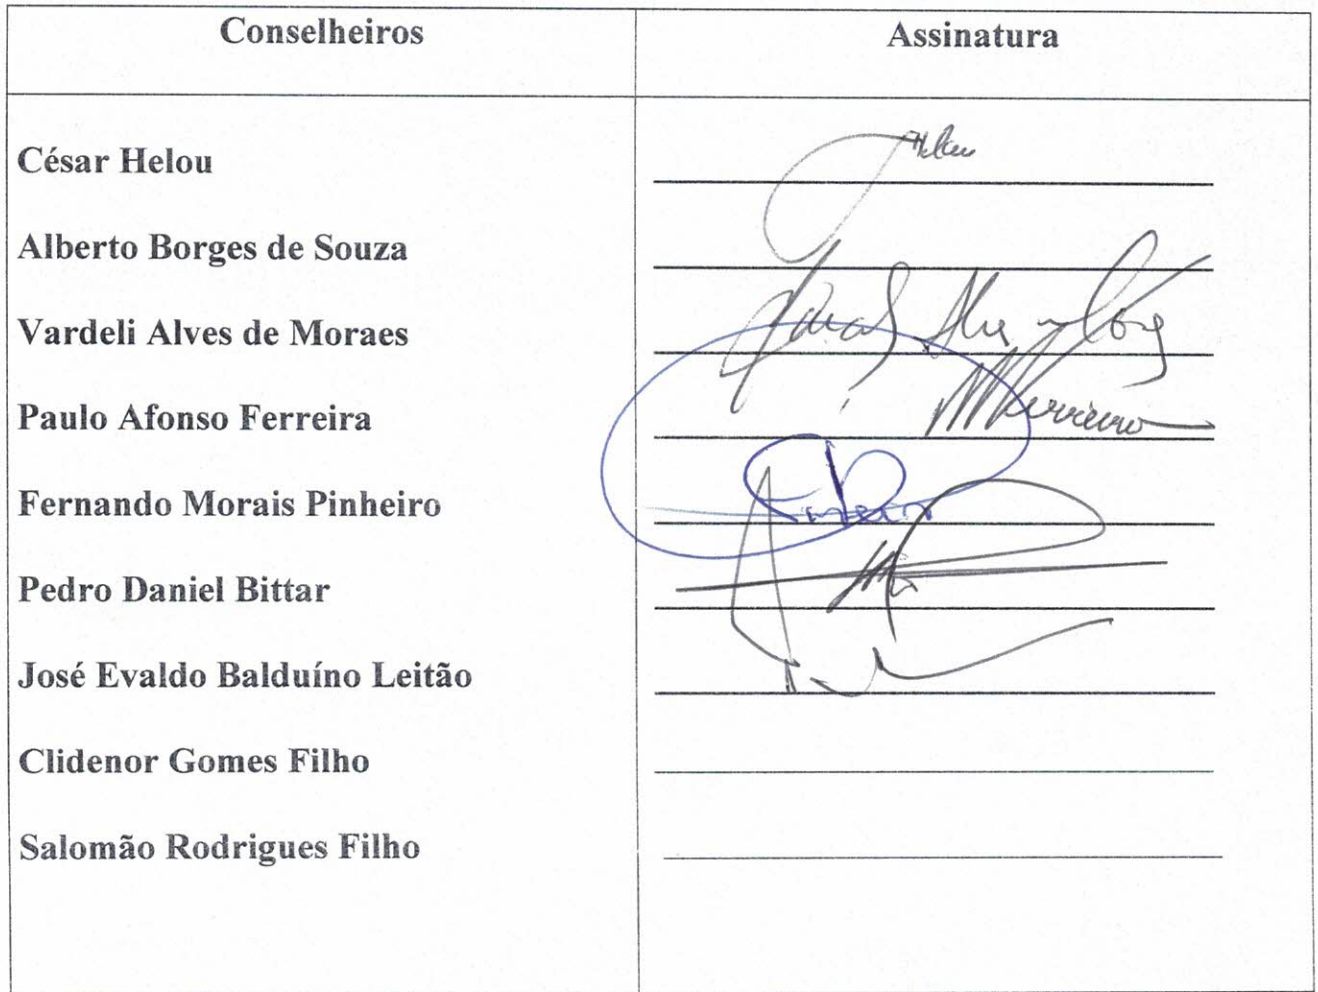 Conselheiros Assinatura
César Helou Helou
Alberto Borges de Souza
Vardeli Alves de Moraes
Paulo Afonso Ferreira
Fernando Morais Pinheiro
Pedro Daniel Bittar
José Evaldo Balduíno Leitão
Clidenor Gomes Filho
Salomão Rodrigues Filho